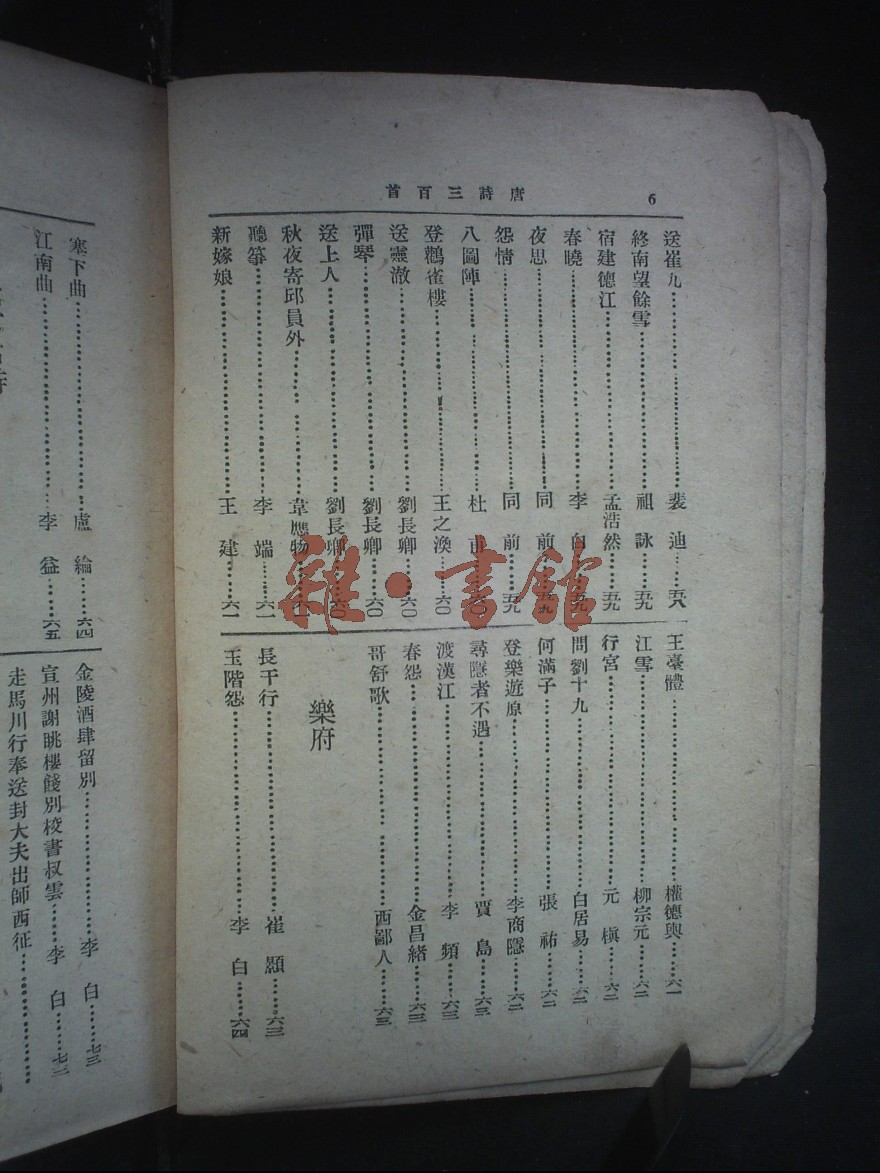 唐詩三百首
6
送崔九 裴迪 五八
終南望餘雪 祖詠 五九
宿建德江 孟浩然 五九
春曉 李白 五九
夜思 同前 五九
怨情 同前 五九
八圖陣 杜甫 六〇
登鸛雀樓 王之渙 六〇
送靈澈 劉長卿 六〇
彈琴 劉長卿 六〇
送上人 劉長卿 六〇
秋夜寄邱員外 韋應物
聽箏 李端 六一
新嫁娘 王建 六一
玉臺體 權德輿 六一
江雪 柳宗元 六二
行宮 元稹 六二
問劉十九 白居易 六二
何滿子 張祜 六二
登樂遊原 李商隱 六二
尋隱者不遇 賈島 六三
渡漢江 李頻 六三
春怨 金昌緒 六三
哥舒歌 西鄙人 六三
樂府
長干行 崔顥 六三
玉階怨 李白 六四
塞下曲 盧綸 六四
江南曲 李益 六五
金陵酒肆留別 李白 七三
宣州謝眺樓餞別校書叔雲 李白 七三
走馬川行奉送封大夫出師西征
雜·書館